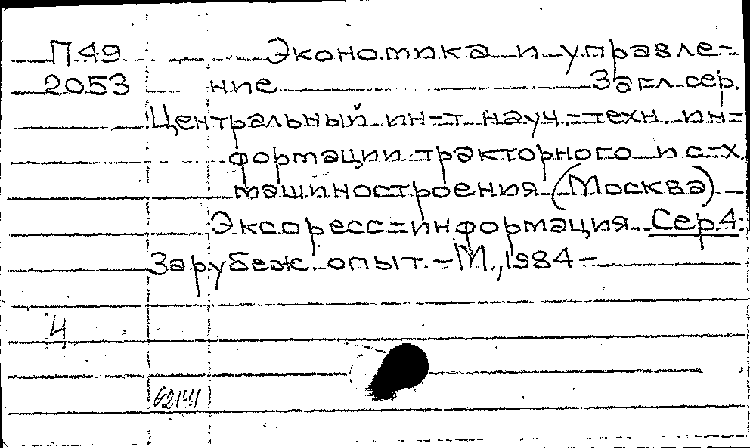 П49 Экономика и управле-
2053 ние Загл.сер.
Центральный ин-т науч.-техн. ин-
формации тракторного и с-х
машиностроения (Москва)
Экспресс-информация. Сер.4:
Зарубеж. опыт. - М., 1984 -
4